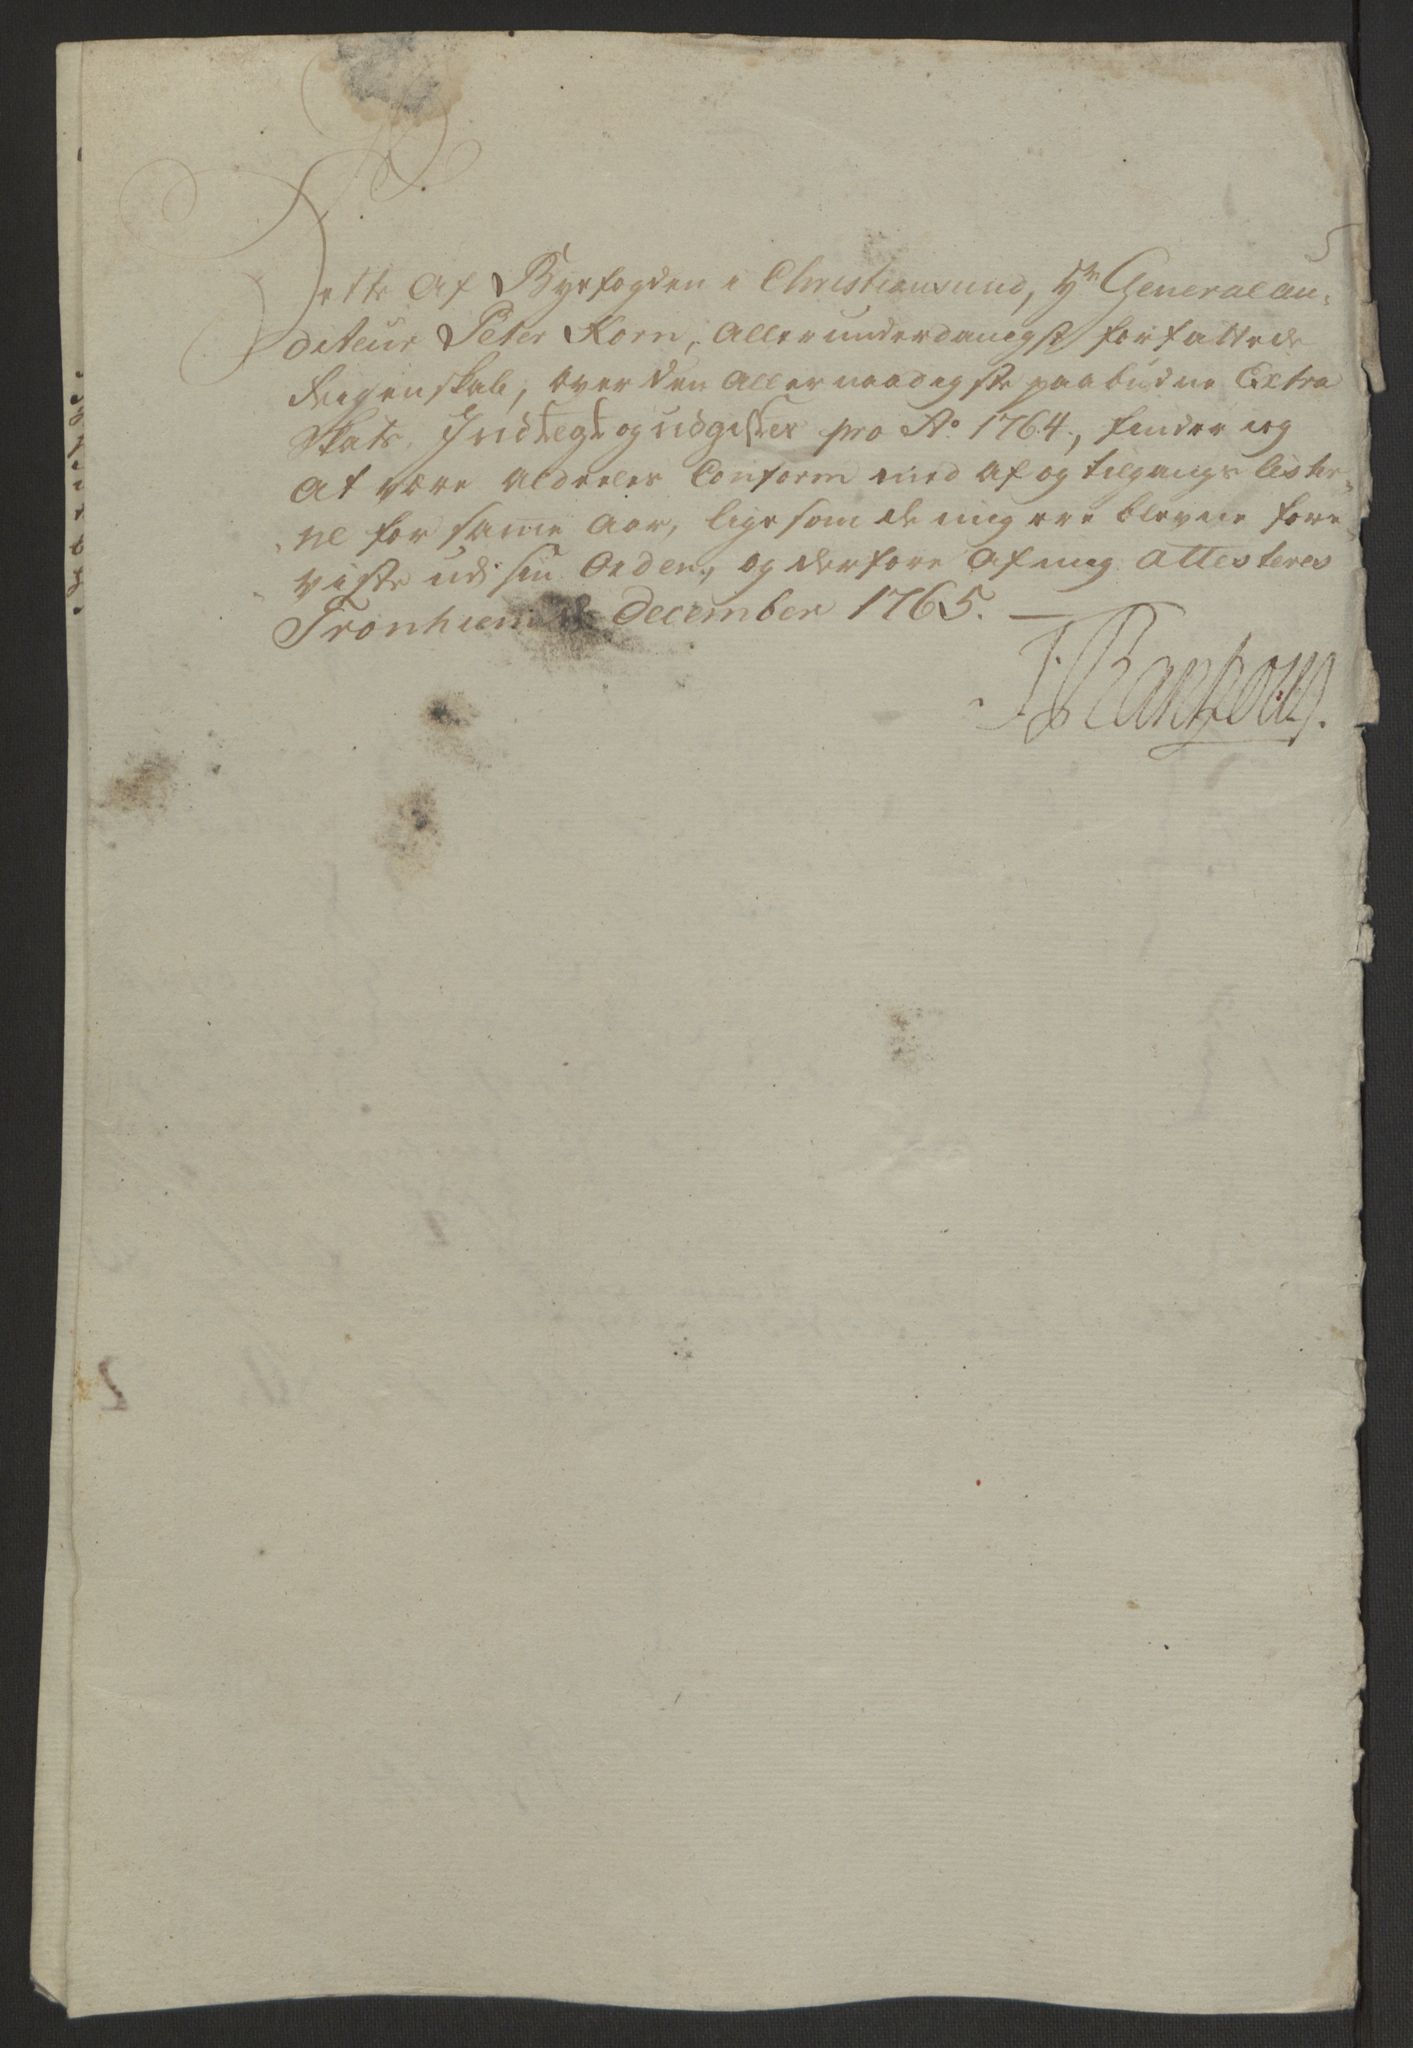 Dette Af Byefogden i Christiansund, Hr Generalau-
diteur Peter Korn, Allerunderdanigst forfattede
Reigenskab, over den Allernaadigste paabudne Extra
Skats Indtegt og udgifter pro Ao 1764, finder ieg
At være Aldeeles Conform med Af og tilgangs Lister-
ne for samme Aar, lige som de mig ere blevne fore-
viiste udi sin Orden, og derfore Af mig Attesteres
Tronhiem d December 1765. —